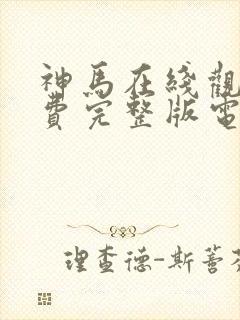 神馬在綫觀
費完整版電
理查德-斯蒼